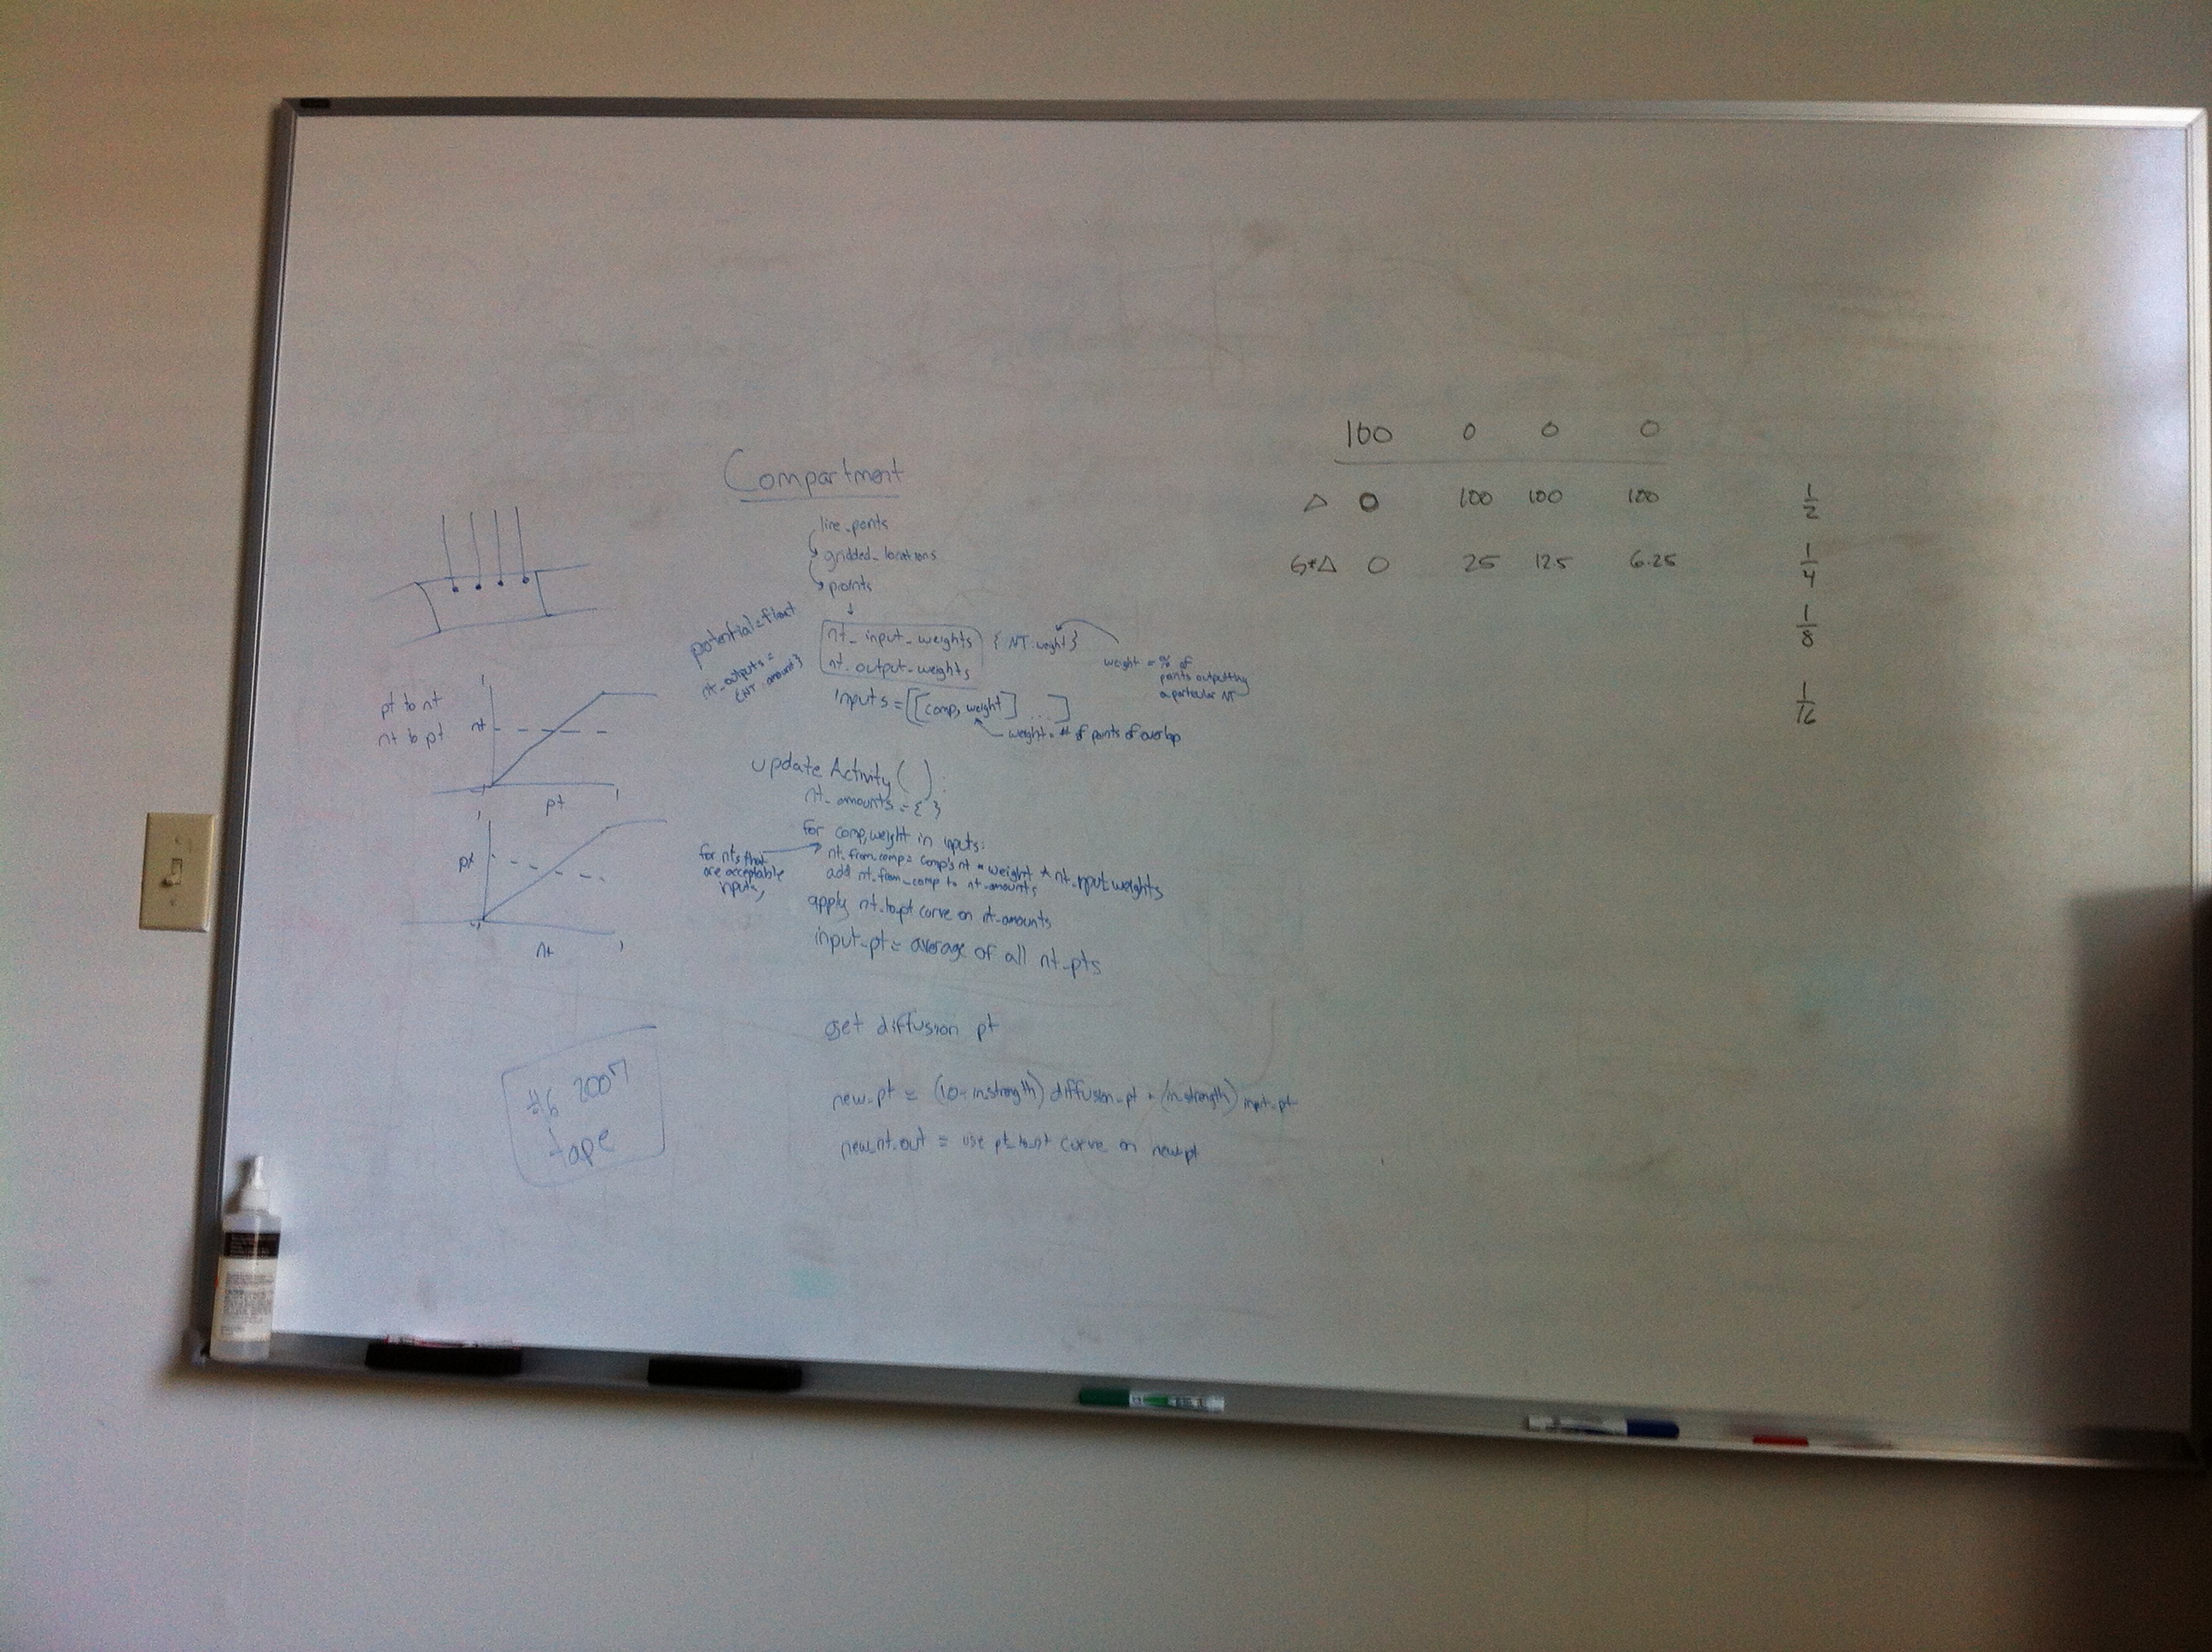 Compartment
line_points
gridded_locations
points
potential = float
nt_outputs =
{NT: amount}
nt_input_weights
nt_output_weights
{NT: weight}
weight = % of
points outputting
a particular NT
inputs = [[comp, weight] ...]
weight = # of points of overlap
update Activity ( ) :
nt_amounts = { }
for comp, weight in inputs:
nt_from_comp = comp's nt * weight * nt_input_weights
add nt_from_comp to nt_amounts
for nts that
are acceptable
inputs,
apply nt_to_pt curve on nt_amounts
input_pt = average of all nt_pts
get diffusion pt
new_pt = (1.0 - in_strength) diffusion_pt + (in_strength) input_pt
new_nt_out = use pt_to_nt curve on new_pt
pt to nt
nt to pt
1
nt
-1
pt
1
1
pt
-1
nt
1
#6 2007
tape
100 0 0 0
Δ 0 100 100 100
G*Δ 0 25 125 6.25
1/2
1/4
1/8
1/16